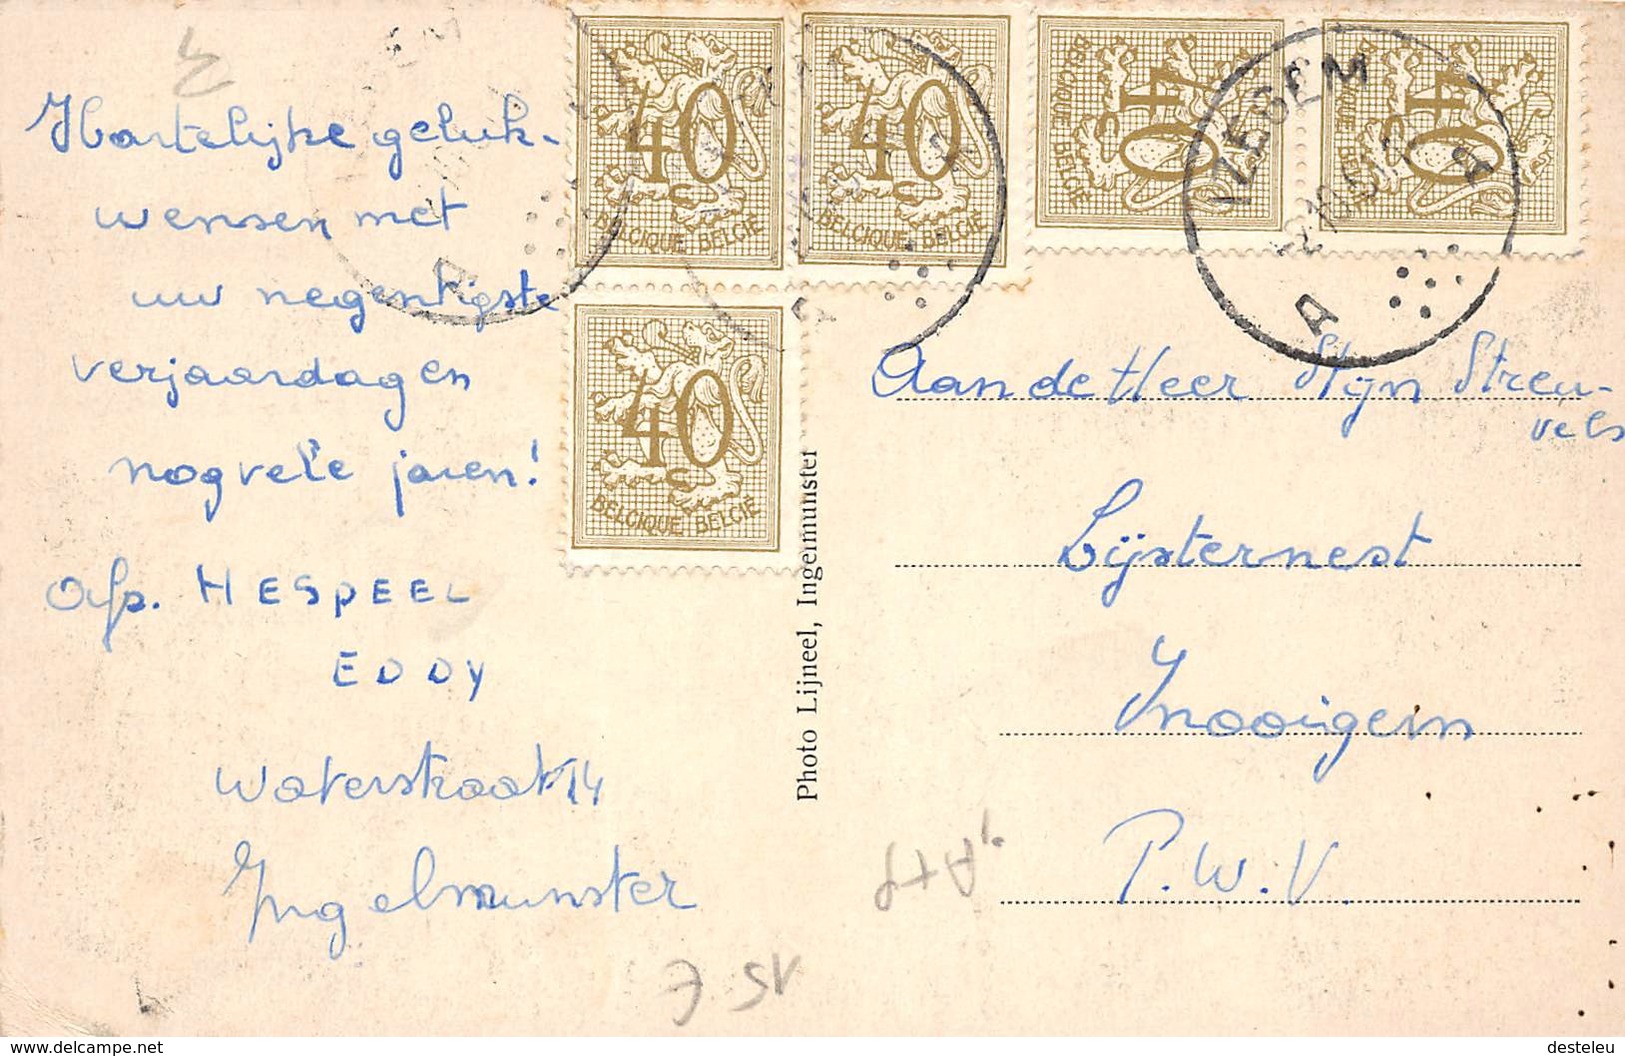 Hartelijke geluk-
wensen met
uw negentigste
verjaardag en
nog vele jaren!
Afz. HESPEEL
EDDY
Waterstraat 14
Ingelmunster
40
BELGIQUE BELGIË
40
BELGIQUE BELGIË
40
BELGIQUE BELGIË
40
BELGIQUE BELGIË
40
BELGIQUE BELGIË
IZEGEM
A
A
Photo Lijneel, Ingelmunster
Aan de Heer Stijn Streu-
vels
Lijsternest
Ynooigem
P.W.V.
15 €
delcampe.net
desteleu